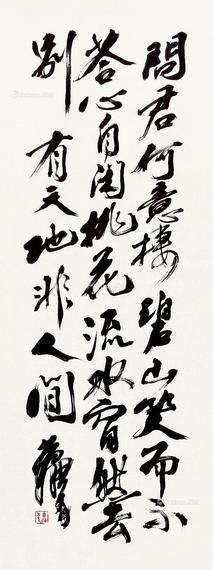 問君何意棲碧山笑而不
答心自閑桃花流水窅然去
別有天地非人間